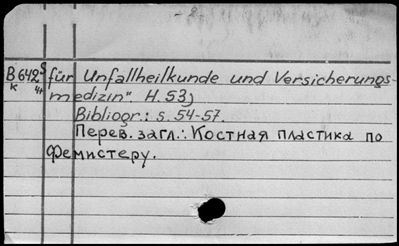 - 2 -
B 642 S für Unfallheilkunde und Versicherungs-
к 4+ medizin". H. 53)
Bibliogr.: s. 54-57.
Перев. загл.: Костная пластика по
Фемистеру.